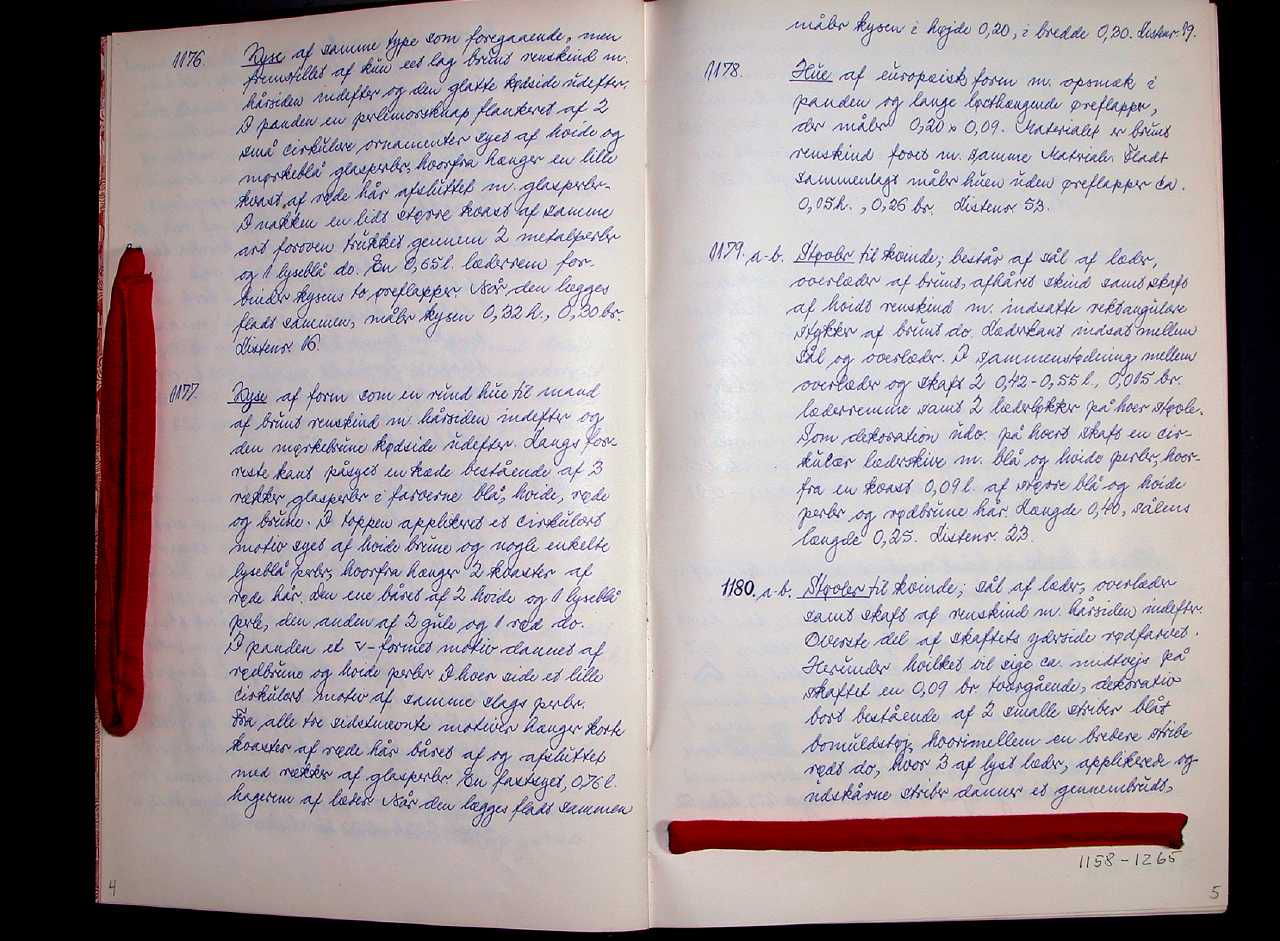 1176. Kyse af samme type som foregaaende, men
fremstillet af kun eet lag brunt renskind m.
hårsiden indefter og den glatte kødside udefter.
I panden en perlemorsknap flankeret af 2
små cirkulære ornamenter syet af hvide og
mørkeblå glasperler, hvorfra hænger en lille
kvast af røde hår afsluttet m. glasperler.
I nakken en lidt større kvast af samme
art foroven trukket gennem 2 metalperler
og 1 lyseblå do. En 0,65 l. læderrem for-
binder kysens to øreflapper. Når den lægges
fladt sammen, måler kysen 0,32 h., 0,30 br.
Listenr. 16.
1177. Kyse af form som en rund hue til mand
af brunt renskind m. hårsiden indefter og
den mørkebrune kødside udefter. Langs for-
reste kant påsyet en kæde bestående af 3
rækker glasperler i farverne blå, hvide, røde
og brune. I toppen appliceret et cirkulært
motiv syet af hvide brune og nogle enkelte
lyseblå perler, hvorfra hænger 2 kvaster af
røde hår. Den ene båret af 2 hvide og 1 lyseblå
perle, den anden af 2 gule og 1 rød do.
I panden et v-formet motiv dannet af
rødbrune og hvide perler. I hver side et lille
cirkulært motiv af samme slags perler.
Fra alle tre sidstnævnte motiver hænger korte
kvaster af røde hår båret af og afsluttet
med rækker af glasperler. En fastsyet, 0,76 l.
hagerem af læder. Når den lægges fladt sammen
4
måler kysen i højde 0,20, i bredde 0,30. Listenr. 19.
1178. Hue af europæisk form m. opsmæk i
panden og lange løsthængende øreflapper,
der måler 0,20 x 0,09. Materialet er brunt
renskind foret m. samme Materiale. Fladt
sammenlagt måler huen uden øreflapper ca.
0,15 h., 0,26 br. Listenr. 53.
1179. a-b. Støvler til kvinde; består af sål af læder,
overlæder af brunt, afhåret skind samt skaft
af hvidt renskind m. indsatte rektangulære
stykker af brunt do. Læderkant indsat mellem
sål og overlæder. I sammenstødning mellem
overlæder og skaft 2 0,42-0,55 l., 0,015 br.
læderremme samt 2 læderlykker på hver støvle.
Som dekoration udv. på hvert skaft en cir-
kulær læderskive m. blå og hvide perler, hvor-
fra en kvast 0,09 l. af større blå og hvide
perler og rødbrune hår. Længde 0,40, sålens
længde 0,25. Listenr. 23.
1180. a-b. Støvler til kvinde; sål af læder, overlæder
samt skaft af renskind m. hårsiden indefter.
Øverste del af skaftets yderside rødfarvet.
Herunder hvilket vil sige ca. midtvejs på
skaftet en 0,09 br. tværgående, dekorativ
bort bestående af 2 smalle striber blåt
bomuldstøj, hvorimellem en bredere stribe
rødt do, hvor 3 af lyst læder, applikerede og
udskårne striber danner et gennembrudt,
1158-1265
5